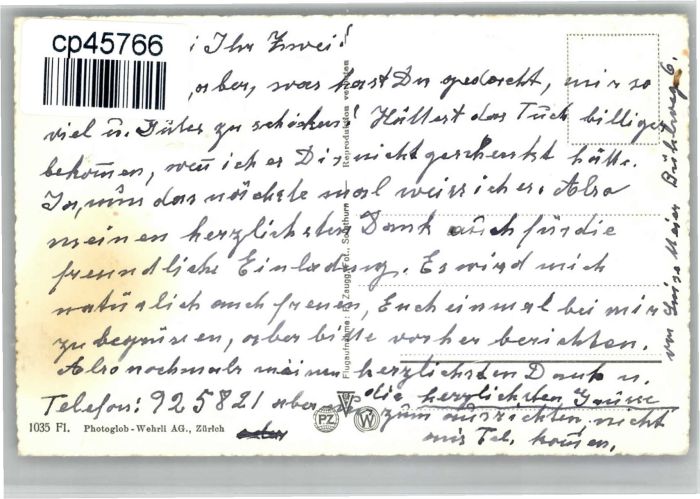 cp45766
i Ihr Zwei!
, aber, was hast Du gedacht, mir so
viel u. Gutes zu schicken! Hättest das Tuch billiger
bekommen, wenn ich es Dir nicht geschenkt hätte.
Ja, nun das nächste mal weiss ich es. Also
meinen herzlichsten Dank auch für die
freundliche Einladung. Es wird mich
natürlich auch freuen, Euch einmal bei mir
zu begrüssen, aber bitte vorher berichten.
Also nochmals meinen herzlichsten Dank u.
die herzlichsten Grüsse
Telefon: 925821 aber
zum ausrichten, nicht
ans Tel. kommen.
von Luise Meier Bühlweg 6.
Flugaufnahme: Fot. Seonthum Reproduktion verboten
1035 Fl. Photoglob-Wehrli AG., Zürich
PZ
W